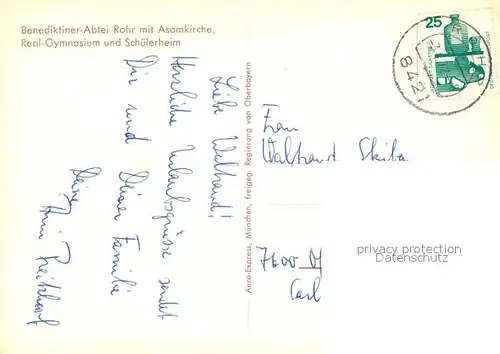 Benediktiner-Abtei Rohr mit Asamkirche,
Real-Gymnasium und Schülerheim
Liebe Waltraud!
Herzliche Urlaubsgrüsse sendet
Dir und Deiner Familie
Deine
Aero-Express, München, freigeg. Regierung von Oberbayern
25
8421
Frau
Waltraud Skiba
7600
Carl
privacy protection
Datenschutz